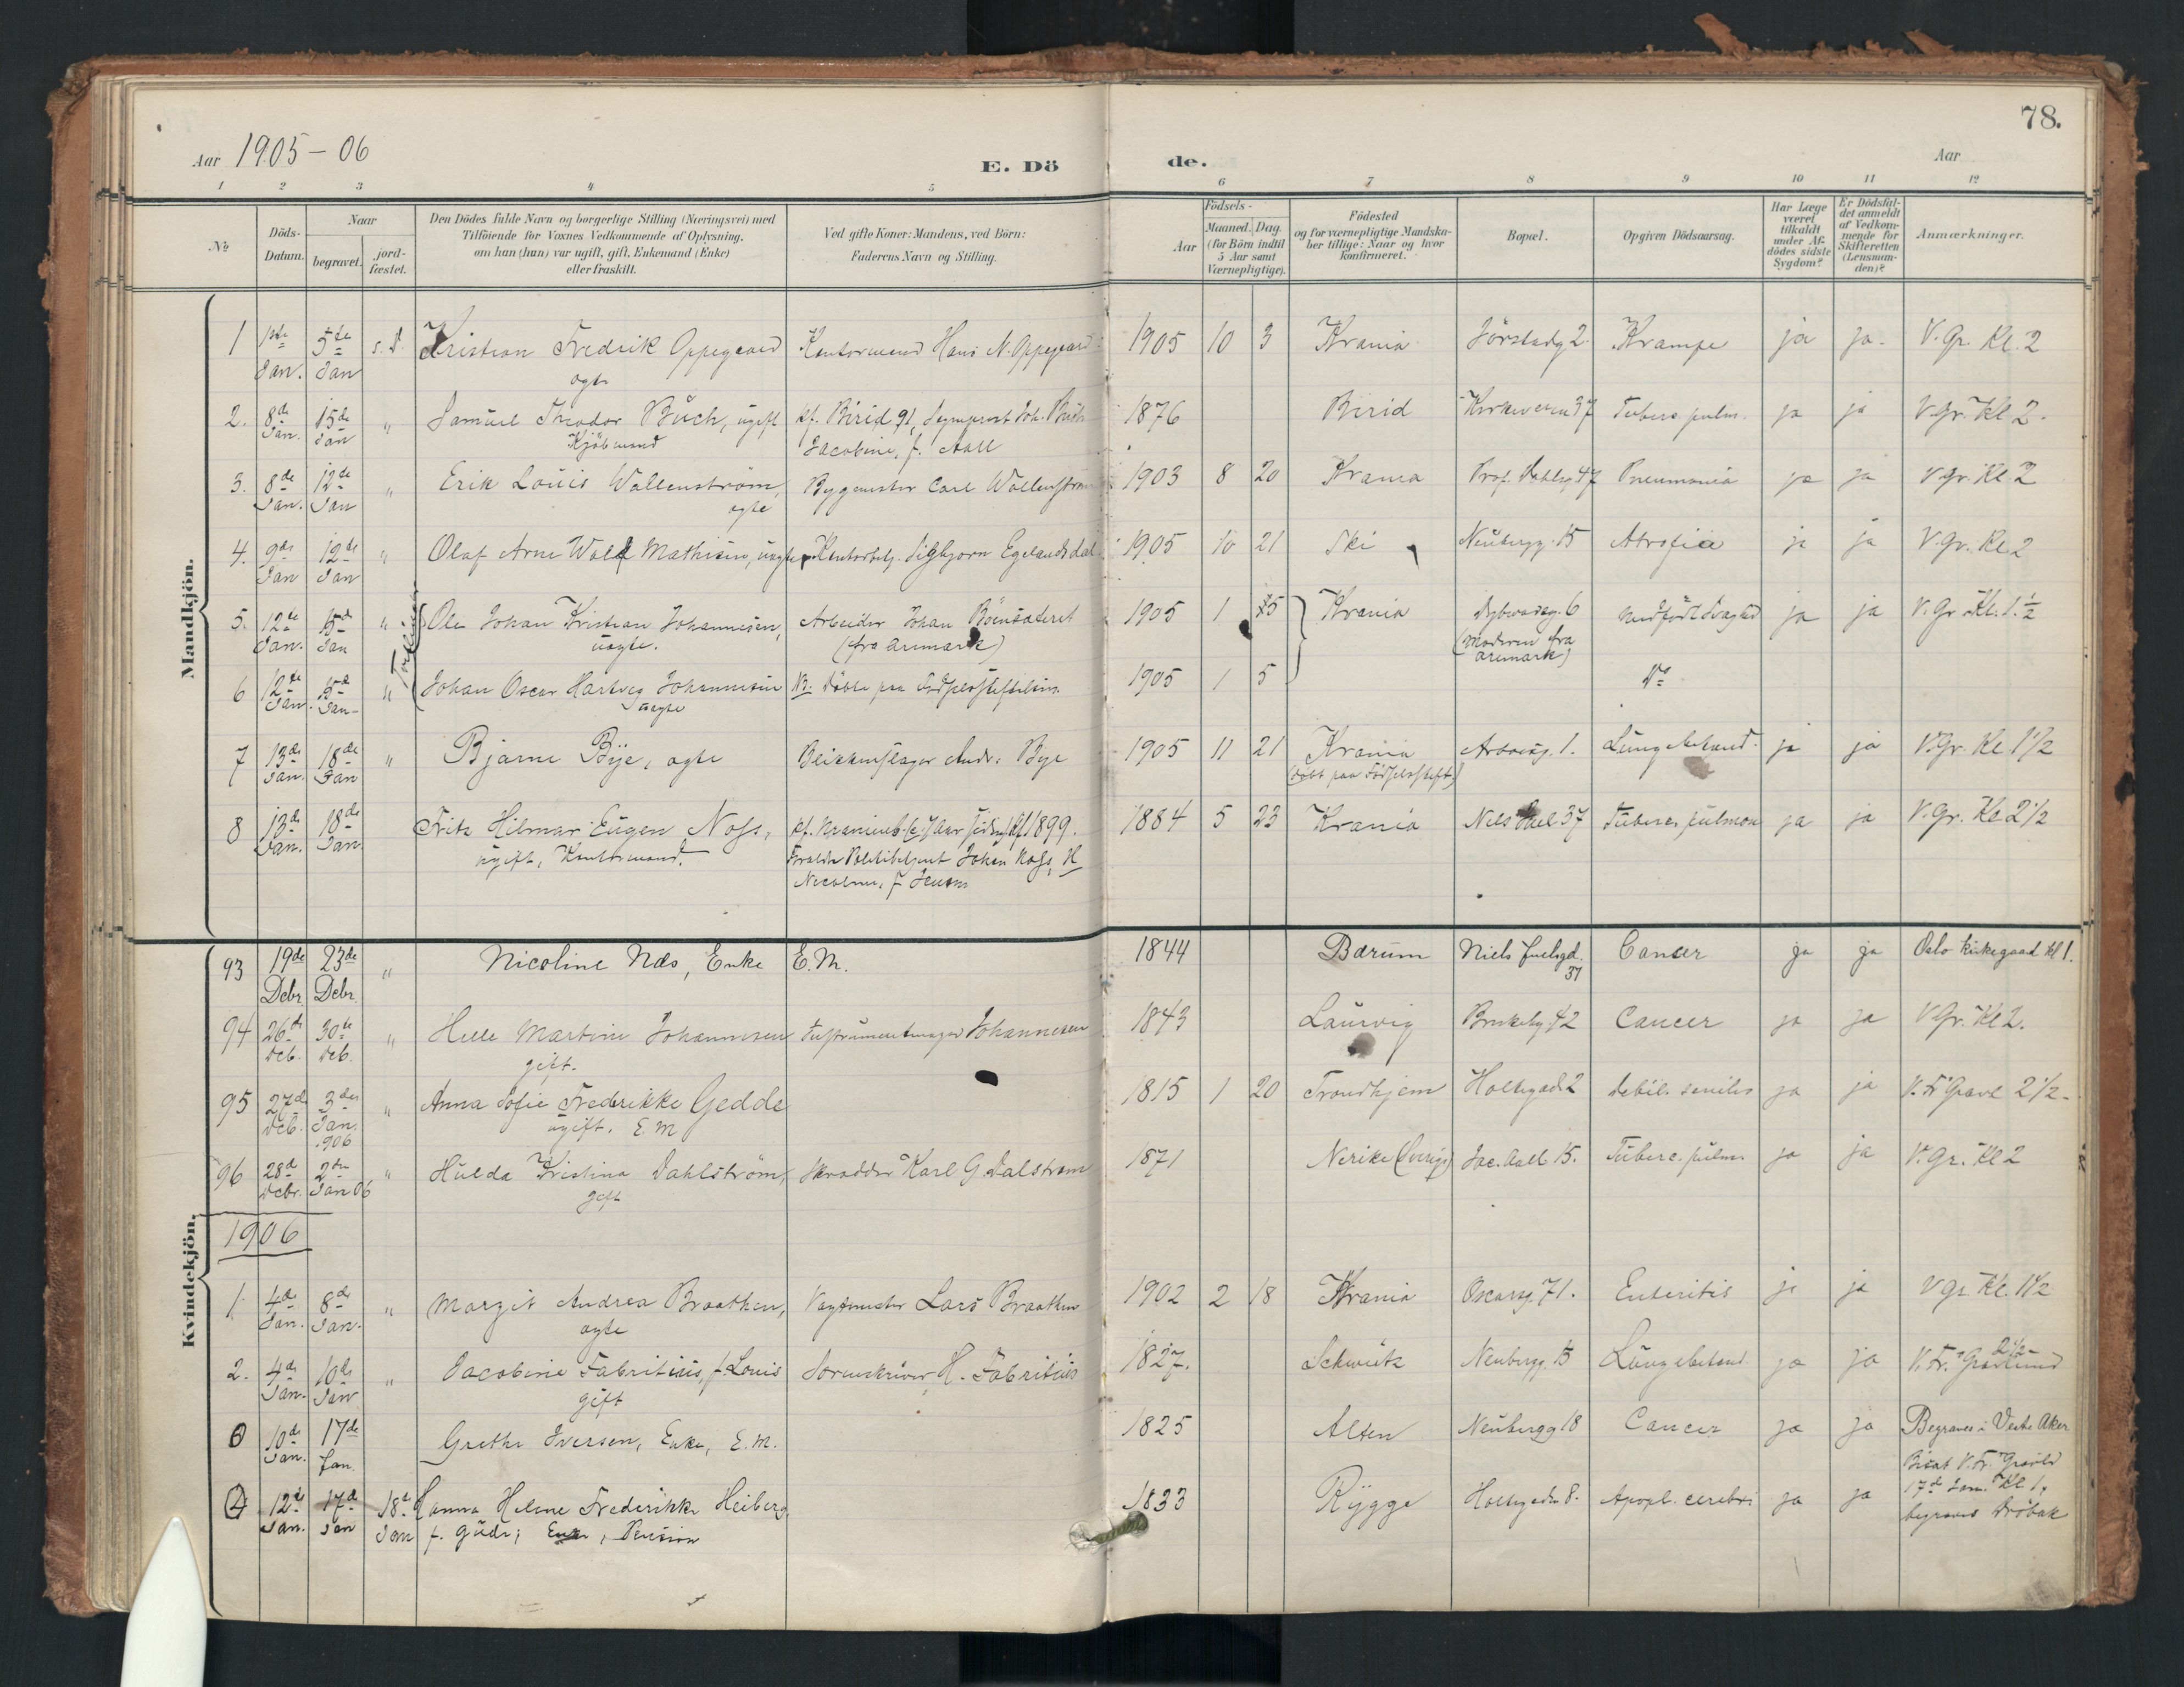 78.
Aar 1905-06
E. Dö de.
Aar
1 2 3 4 5 6 7 8 9 10 11 12
No
Döds-Datum.
Naar
begravet.
jord-fæstet.
Den Dödes fulde Navn og borgerlige Stilling (Næringsvei) med
Tilföiende for Voxnes Vedkommende af Oplysning,
om han (hun) var ugift, gift, Enkemand (Enke)
eller fraskilt.
Ved gifte Koner: Mandens, ved Börn:
Faderens Navn og Stilling.
Födsels-
Aar
Maaned. Dag.
(for Börn indtil
5 Aar samt
Værnepligtige).
Födested
og for værnepligtige Mandska-
ber tillige: Naar og hvor
konfirmeret.
Bopæl.
Opgiven Dödsaarsag.
Har Læge
været
tilkaldt
under Af-
dödes sidste
Sygdom?
Er Dödsfal-
det anmeldt
af Vedkom-
mende for
Skifteretten
(Lensman-
den)?
Anmærkninger.
Mandkjön.
1 1ste Jan. 5te Jan s. D. Kristian Fredrik Oppegaard Kontormand Hans N. Oppegaard 1905 10 3 Krania Jörstadg 2. Krampe ja ja. V. Gr. Kl. 2
ogte
2. 8de Jan. 15de Jan " Samuel Theodor Buch, ugift kf. Birid 91, 1876 Birid Kirkeveien 37 Tuberc. pulm. ja ja V. Gr. Kl 2.
Kjöbmand Jacobine, f. Aall
3. 8de Jan. 12te Jan " Erik Louis Wallenström, Bygmester Carl Wallenström 1903 8 20 Krania Prof. Dahlsg. 47 Pneumonia ja ja V. Gr. Kl. 2
ægte
4. 9de Jan 12te Jan " Olaf Arne Mathisen, uægte Sigbjorn Egelandsdal 1905 10 21 Ski Neubergg. 15 Atrofia ja ja V. Gr. Kl. 2
Tvillinger
5. 12te Jan. 15de Jan " Ole Johan Kristian Johannesen, Arbeider Johan 1905 1 5 Krania Dybwadsg. 6 medfödt Svaghed ja ja V. Gr Kl. 1 ½
uægte. (fra Aremark) (Moderen fra Aremark)
6 12te Jan. 15de Jan " Johan Oscar Hartvig Johannesen Nb. Döbte paa Födselsstiftelsen. 1905 1 5 Do
uægte
7 13de Jan. 18de Jan " Bjarne Bye, ægte Blikkenslager Andr. Bye 1905 11 21 Krania Arboesg. 1. Lungebetænd. ja ja V. Gr. Kl 1 1/2
(döbt paa Födselsstift.)
8 13de Jan. 18de Jan. Fritz Hilmar Eugen Nøss, 1899. 1884 5 23 Krania Nils Juel 37 Tuberc. pulmon ja ja V. Gr. Kl 2 1/2
ugift, Kontormand. Johan Nøss,
f. Jensen
Kvindekjön.
93 19de Debr. 23de Debr. " Nicoline Næs, Enke E. M. 1844 Bærum Niels Juelsgd. 37 Cancer ja ja Oslo kirkegaard kl 1.
94 26de Deb. 30te Deb. " Helle Martine Johannesen Instrumentmager Johannesen 1843 Laurvig 42 Cancer ja ja V Gr. Kl 2.
gift.
95 27de Deb. 3die Jan. 1906 " Anna Sofie Frederikke Gedde 1815 1 20 Trondhjem Holtegade 2 debil. senilis ja ja V. Fr. Grave 2 1/2.
ugift. E. M
96 28de Debr. 2den Jan 06 " Hulda Kristina Dahlström, Skrædder Karl G. Dalström 1871 Nerike (Sverige) Jac. Aall 15. Tuberc. pulm. ja ja V. Gr. Kl 2
gift
1906
1. 4de Jan. 8de Jan. " Margit Andrea Braathen, Vagtmester Lars Braathen 1902 2 18 Krania Oscarsg. 71. Enteritis ja ja V Gr. Kl. 1 1/2
ægte
2. 4de Jan. 10de Jan " Jacobine Fabritius, f. Louis Sorenskriver H. Fabritius 1827. Schweitz Neubergg. 15 Lungebetænd. ja ja V. Fr. Gravlund 2 1/2
gift
10de Jan. 17de Jan. Grethe Iversen, Enke, E. M. 1825 Alten Neubergg 18 Cancer ja ja Begraves i Vestre Aker
4 12te Jan. 17de Jan 18de Jan Hanna Helene Frederikke Heiberg, 1833 Rygge Holtegaden 8. Apopl. cerebri ja ja Bisat V. Fr. Gravld
f. Gude; Enke, Pension 17de Jan. Kl 1,
begraves Dröbak